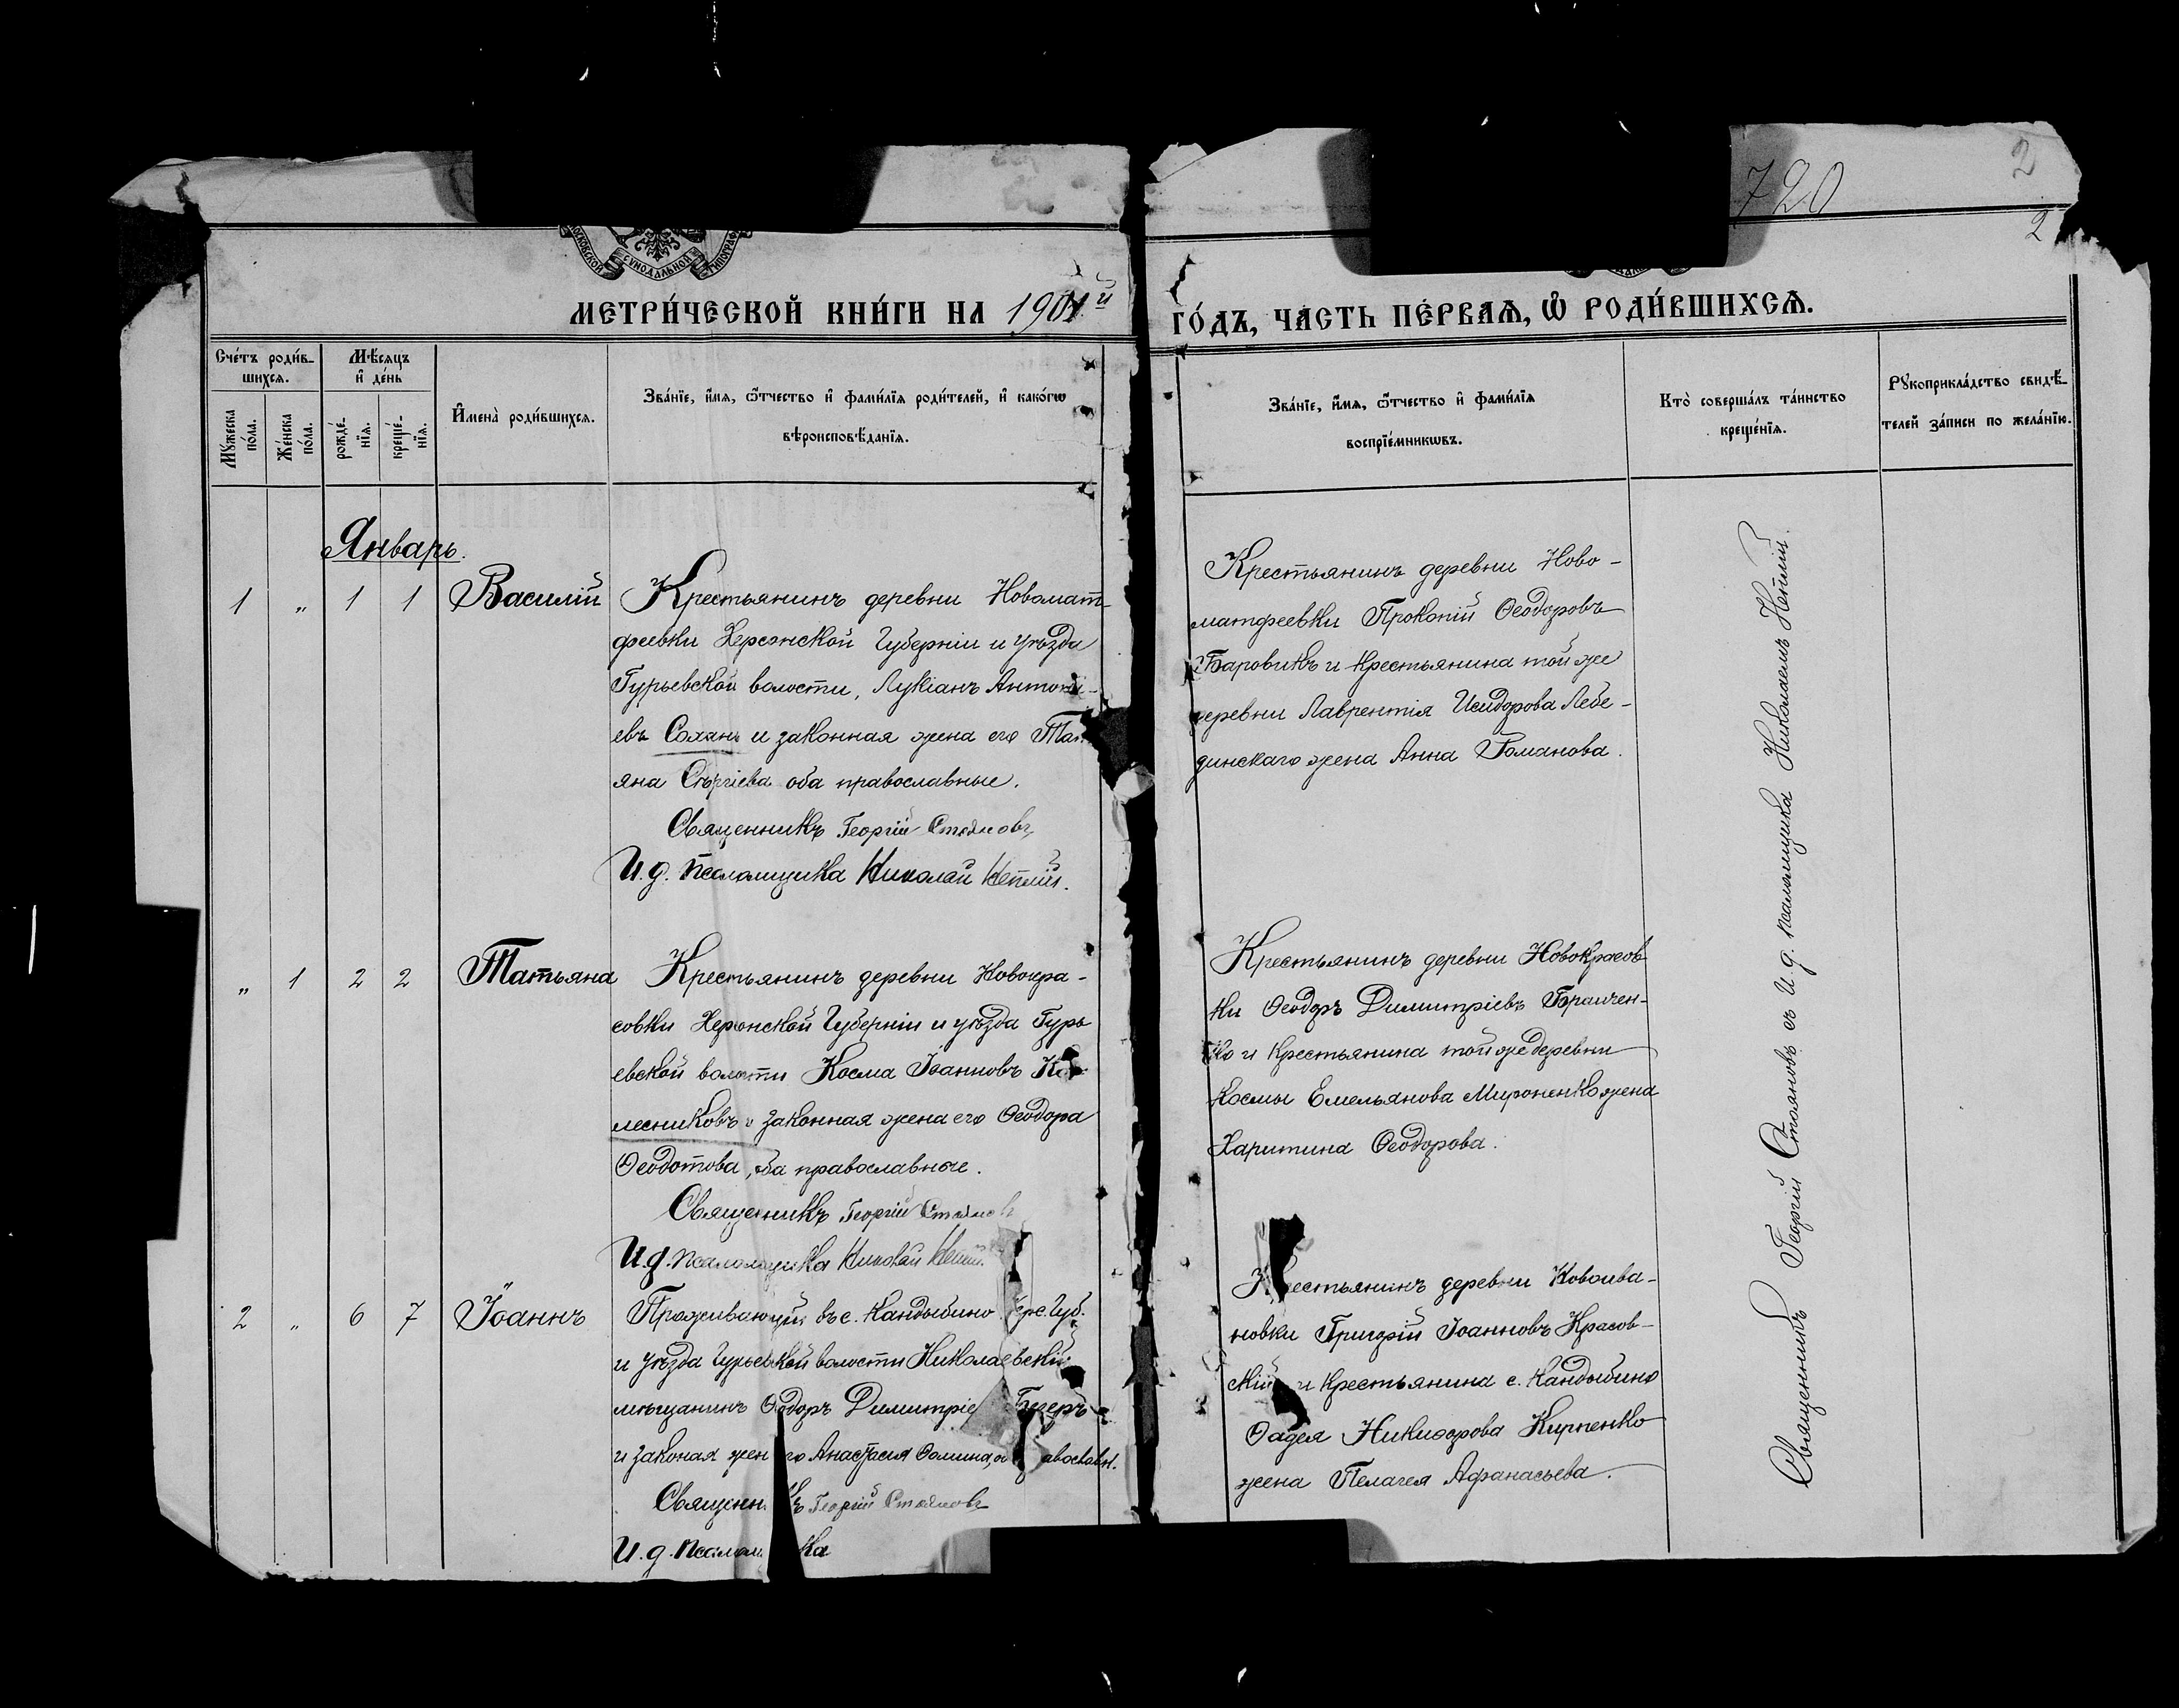 720
2
2
МОСКОВСКОЙ СУНОДАЛЬНОЙ ТИПОГРАФ
МЕТРИ́ЧЕСКОЙ КНИ́ГИ НА 1901й ГО́ДЪ, ЧА́СТЬ ПЕ́РВАѦ, Ѡ҆ РОДИ́ВШИХСѦ.
Сче́тъ роди́в-
шихсѧ.
Мѣ́сѧцъ
и҆ де́нь
Мꙋ́жеска
по́ла.
Же́нска
по́ла.
рожде́-
нїѧ.
креще́-
нїѧ.
И҆мена̀ роди́вшихсѧ.
Зва́нїе, и҆́мѧ, ѻ҆́тчество и҆ фами́лїѧ роди́телей, и҆ како́гѡ
вѣроисповѣ́данїѧ.
Зва́нїе, и҆́мѧ, ѻ҆́тчество и҆ фами́лїѧ
воспрїе́мникѡвъ.
Кто̀ соверша́лъ та́инство
креще́нїѧ.
Рꙋкоприкла́дство свидѣ́-
телей за́писи по жела́нїю.
Январь.
1 „ 1 1 Василій
Крестьянинъ деревни Новомат-
феевки Херсонской Губерніи и уѣзда
Гурьевской волости, Лукіанъ Антоні-
евъ Сохань и законная жена его Тат
яна Сергіева оба православные.
Священникъ Георгій Стояновъ
И.д. псаломщика Николай
Крестьянинъ деревни Ново-
матфеевки Прокопій Ѳеодоровъ
Боровикъ и крестьянина той же
деревни Лаврентія Исидорова Лебе-
динскаго жена Анна Романова.
„ 1 2 2 Татьяна
Крестьянинъ деревни Новокра-
совки Херсонской Губерніи и уѣзда Гурь
евской волости Косма Іоанновъ Ко
лесниковъ и законная жена его Ѳеодора
Ѳеодотова, оба православные.
Священникъ Георгій Стояновъ
И.д. псаломщика Николай
Крестьянинъ деревни Новокрасов
ки Ѳеодоръ Димитріевъ
ко и крестьянина той же деревни
Космы Емельянова Мироненко жена
Харитина Ѳеодорова.
2 „ 6 7 Іоаннъ
Проживающій въ с. Кандыбино Хер. Губ.
и уѣзда Гурьевской волости Николаевскій
мѣщанинъ Ѳеодоръ Димитріе
и законая жен его Анастасія Ѳомина, о авославн.
Священникъ Георгій Стояновъ
И.д. псалом ка
Крестьянинъ деревни Новоива-
новки Григорій Іоанновъ Красов-
скій и крестьянина с. Кандыбино
Ѳадея Никифорова Кирпенко
жена Пелагея Афанасьева.
Священникъ Георгій Стояновъ съ И.д. псаломщика Николаемъ